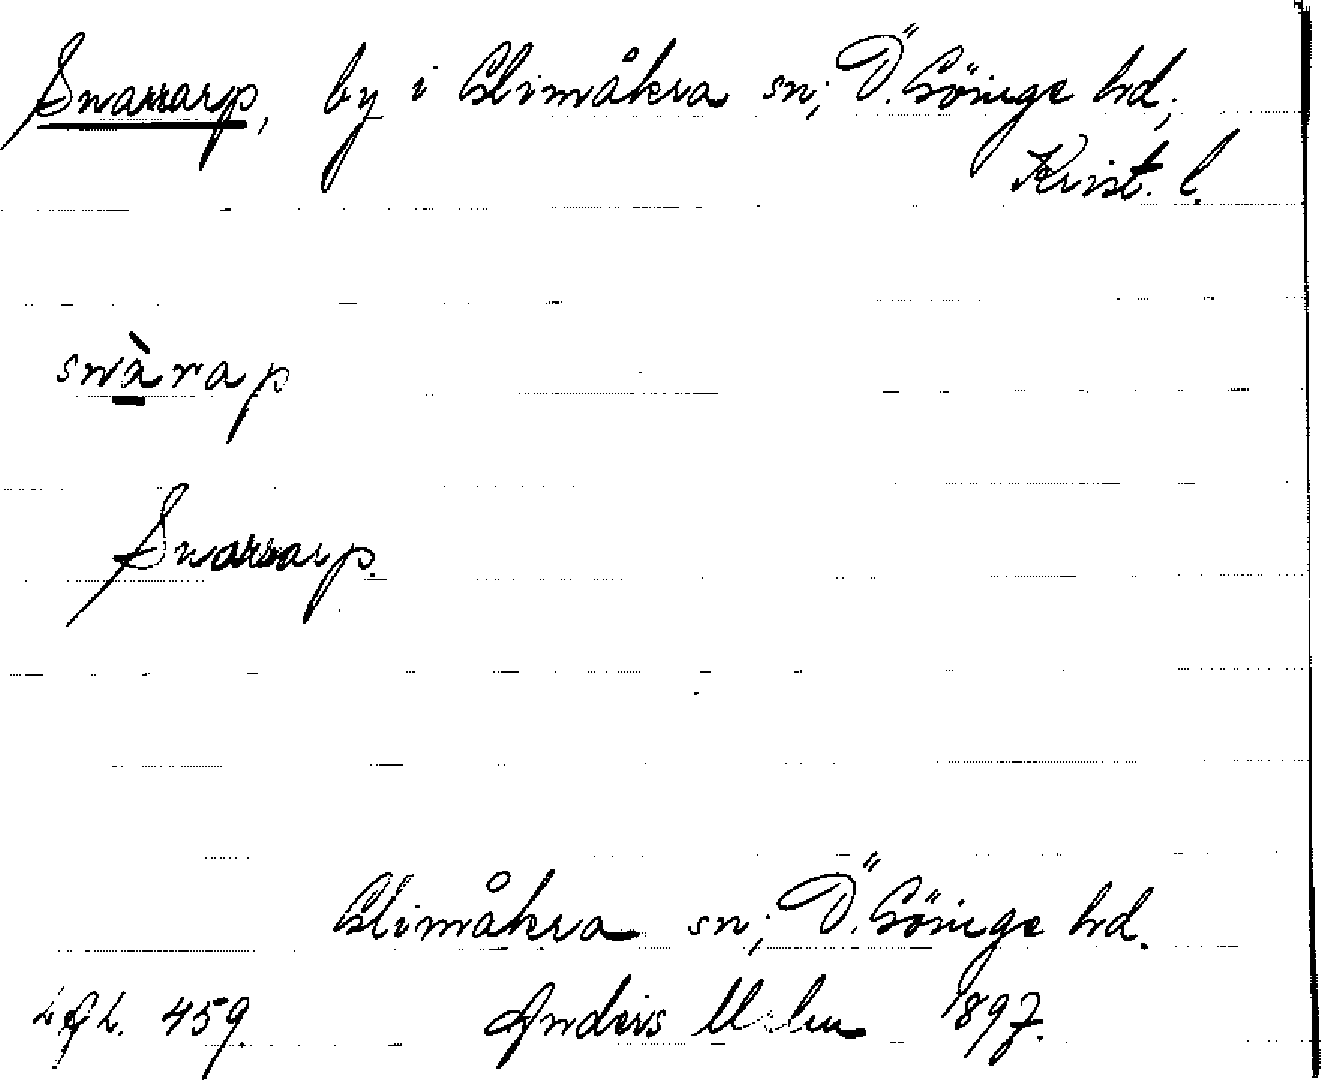 Snararp, by i Glimåkra sn; Ö. Göinge hd;
Krist. l.
snàrap
Snararp.
Glimåkra sn; Ö. Göinge hd.
459. Anders Malm 1897.